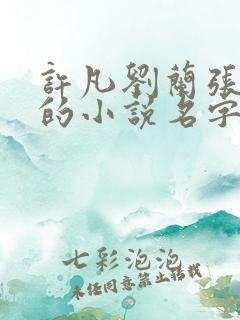 許凡劉蘭張
的小説名字
七彩泡泡
未任同意禁止轉載